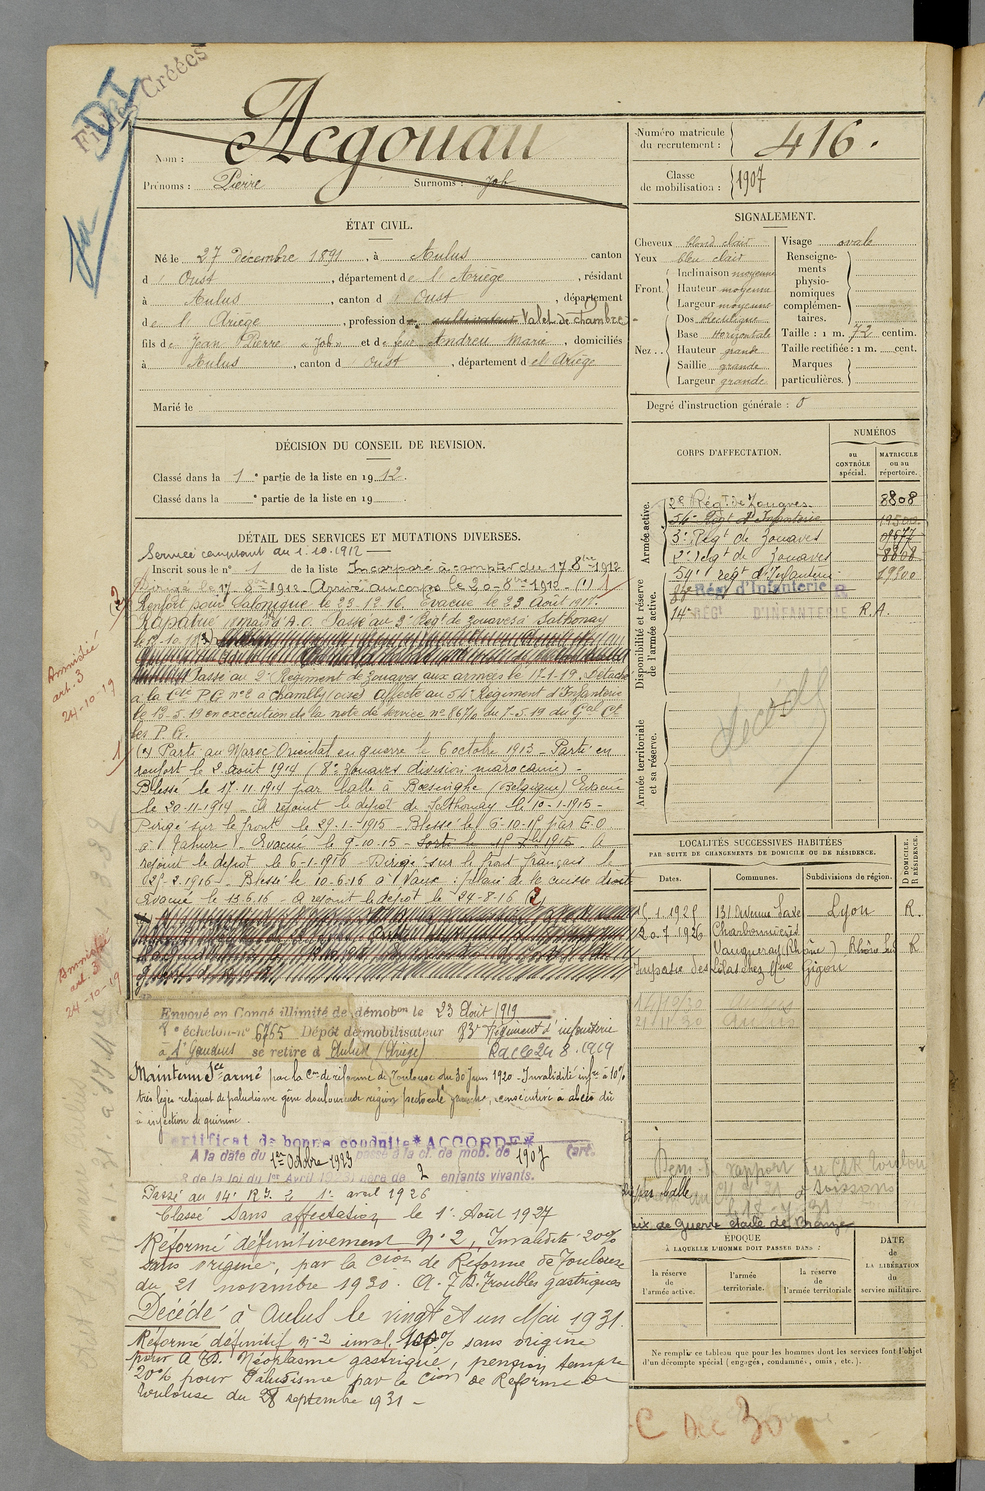 Fiches Créées
Acgouau
Nom :
Prénoms : Pierre Surnoms : Job
Numéro matricule du recrutement : 416.
Classe de mobilisation : 1907
ÉTAT CIVIL.
Né le 27 Décembre 1891, à Aulus canton
d' Oust, département de l'Ariège, résidant
à Aulus, canton d' Oust, département
de l'Ariège, profession de cultivateur Valet de chambre
fils de Jean Pierre "Job" et de feue Andreu Marie, domiciliés
à Aulus, canton d' Oust, département de l'Ariège
Marié le
SIGNALEMENT.
Cheveux blond clair
Yeux bleu clair
Front. Inclinaison moyenne
Hauteur moyenne
Largeur moyenne
Nez .. Dos Rectiligne
Base Horizontale
Hauteur grande
Saillie grande
Largeur grande
Visage ovale
Renseignements physionomiques complémentaires.
Taille : 1 m. 72 centim.
Taille rectifiée : 1 m. cent.
Marques particulières.
Degré d'instruction générale : 0
DÉCISION DU CONSEIL DE REVISION.
Classé dans la 1e partie de la liste en 1912.
Classé dans la e partie de la liste en 19
DÉTAIL DES SERVICES ET MUTATIONS DIVERSES.
Service comptant du 1.10.1912
Inscrit sous le n° 1 de la liste Incorporé à compter du 17 8bre 1912
Dirigé le 17 8bre 1912 Arrivé au corps le 20 8bre 1912 (1)
(2) Renfort pour Salonique le 22.12.16. Evacué le 23 Août 1918.
Rapatrié A.O. Passé au 2e Régt de Zouaves à Sathonay
le 12.10.18
Passé au 2e Régiment de Zouaves aux armées le 17-1-19. Détaché
à la Cie P.G. n°2 à Chambly (Oise) Affecté au 54e Régiment d'Infanterie
le 13-5.19 en exécution de la note de service n° 867/0 du 7-5.19 du Gal Ct
les P.G.
Amnistié
art. 3
24-10-19
(1) Parti au Maroc Oriental en guerre le 6 octobre 1913 - Parti en
renfort le 2 août 1914 (8e Zouaves division marocaine) -
Blessé le 17.11.1914 par balle à Bœsinghe (Belgique) Evacué
le 20-11-1914 - il rejoint le dépôt de Sathonay le 10-1-1915 -
Dirigé sur le front le 29-1-1915 - Blessé le 6-10-15 par E.O
à Tahure - Evacué le 9-10-15 - A
rejoint le dépôt le 6-1-1916 - Dirigé sur le front français le
25-2-1916 - Blessé le 10.6.16 à Vaux : plaie de la cuisse droite
Evacué le 13.6.16 - a rejoint le dépôt le 24-8-16 (2)
Amnistié
art. 3
24-10-19
Envoyé en Congé illimité de démobon le 23 Août 1919
8e échelon-n° 6765 Dépôt démobilisateur 83e Régiment d'infanterie
à St Gaudens se retire à Aulus (Ariège) Rac le 24 8.1919
Maintenu Sce armé par la Con de réforme de Toulouse du 30 Juin 1920 - Invalidité infre à 10%
très léger reliquat de paludisme gêne douloureuse région pectorale gauche, consécutive à abcès dû
à injection de quinine.
Certificat de bonne conduite *ACCORDÉ*
A la date du 1er Octobre 1923 passé à la cl. de mob. de 1907 (art.
8 de la loi du 1er Avril 1923) père de 2 enfants vivants.
Passé au 14e R.I. le 1er avril 1926
Classé Sans affectation le 1er Août 1927
Réformé définitivement N°2, Invalidité 20%
sans origine, par la Cion de Réforme de Toulouse
du 21 novembre 1930. A.T.B. Troubles gastriques
Décédé à Aulus le vingt et un Mai 1931.
Réformé définitif n°2 inval. 100% sans origine
pour A.T.B. Néoplasme gastrique, pension tempre
20% pour Paludisme par la Cion de Réforme de
Toulouse du 28 septembre 1931 -
CORPS D'AFFECTATION.
NUMÉROS
au CONTRÔLE spécial.
MATRICULE ou au répertoire.
Armée active.
2e Régt de Zouaves 8808
54e Régt d'Infanterie 19500
3e Régt de Zouaves
2e régt de Zouaves 8808
54e régt d'Infanterie 19500
Disponibilité et réserve de l'armée active.
Régt d'Infanterie R
14e RÉGT D'INFANTERIE R.A.
Armée territoriale et sa réserve.
décédé
LOCALITÉS SUCCESSIVES HABITÉES
PAR SUITE DE CHANGEMENTS DE DOMICILE OU DE RÉSIDENCE.
Dates. Communes. Subdivisions de région. D DOMICILE. R RÉSIDENCE.
15.1.1925 131 Avenue Saxe Lyon R.
20.7.1926 Charbonnières
Vaugneray (Rhône) Rhône Sud R
Impasse des Lilas chez Mme Gigon
14/10/30 Aulus
21 11 30 Aulus
Croix de Guerre étoile de Bronze
ÉPOQUE
À LAQUELLE L'HOMME DOIT PASSER DANS :
la réserve de l'armée active.
l'armée territoriale.
la réserve de l'armée territoriale
DATE de LA LIBÉRATION du service militaire.
Ne remplir ce tableau que pour les hommes dont les services font l'objet
d'un décompte spécial (engagés, condamnés, omis, etc.).
C Déc 30